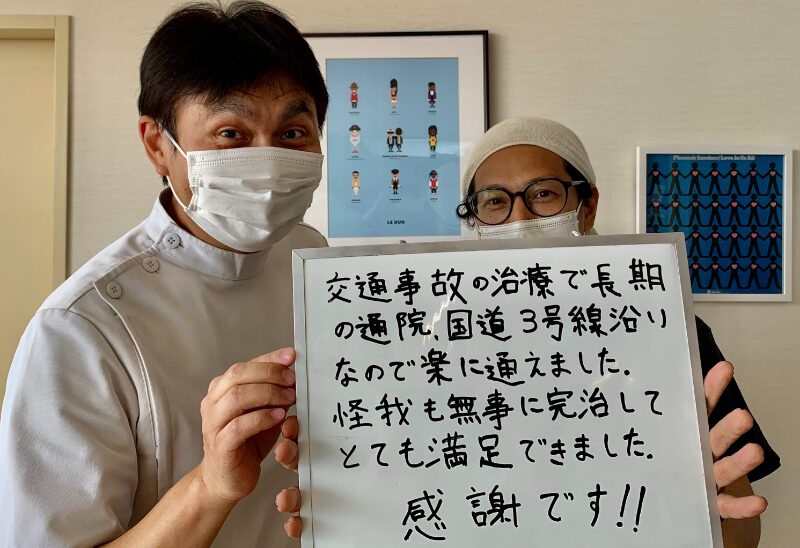 LE DUO
Pharoah Sanders/Love In Us All
交通事故の治療で長期
の通院、国道3号線沿り
なので楽に通えました.
怪我も無事に完治して
とても満足できました.
感謝です!!